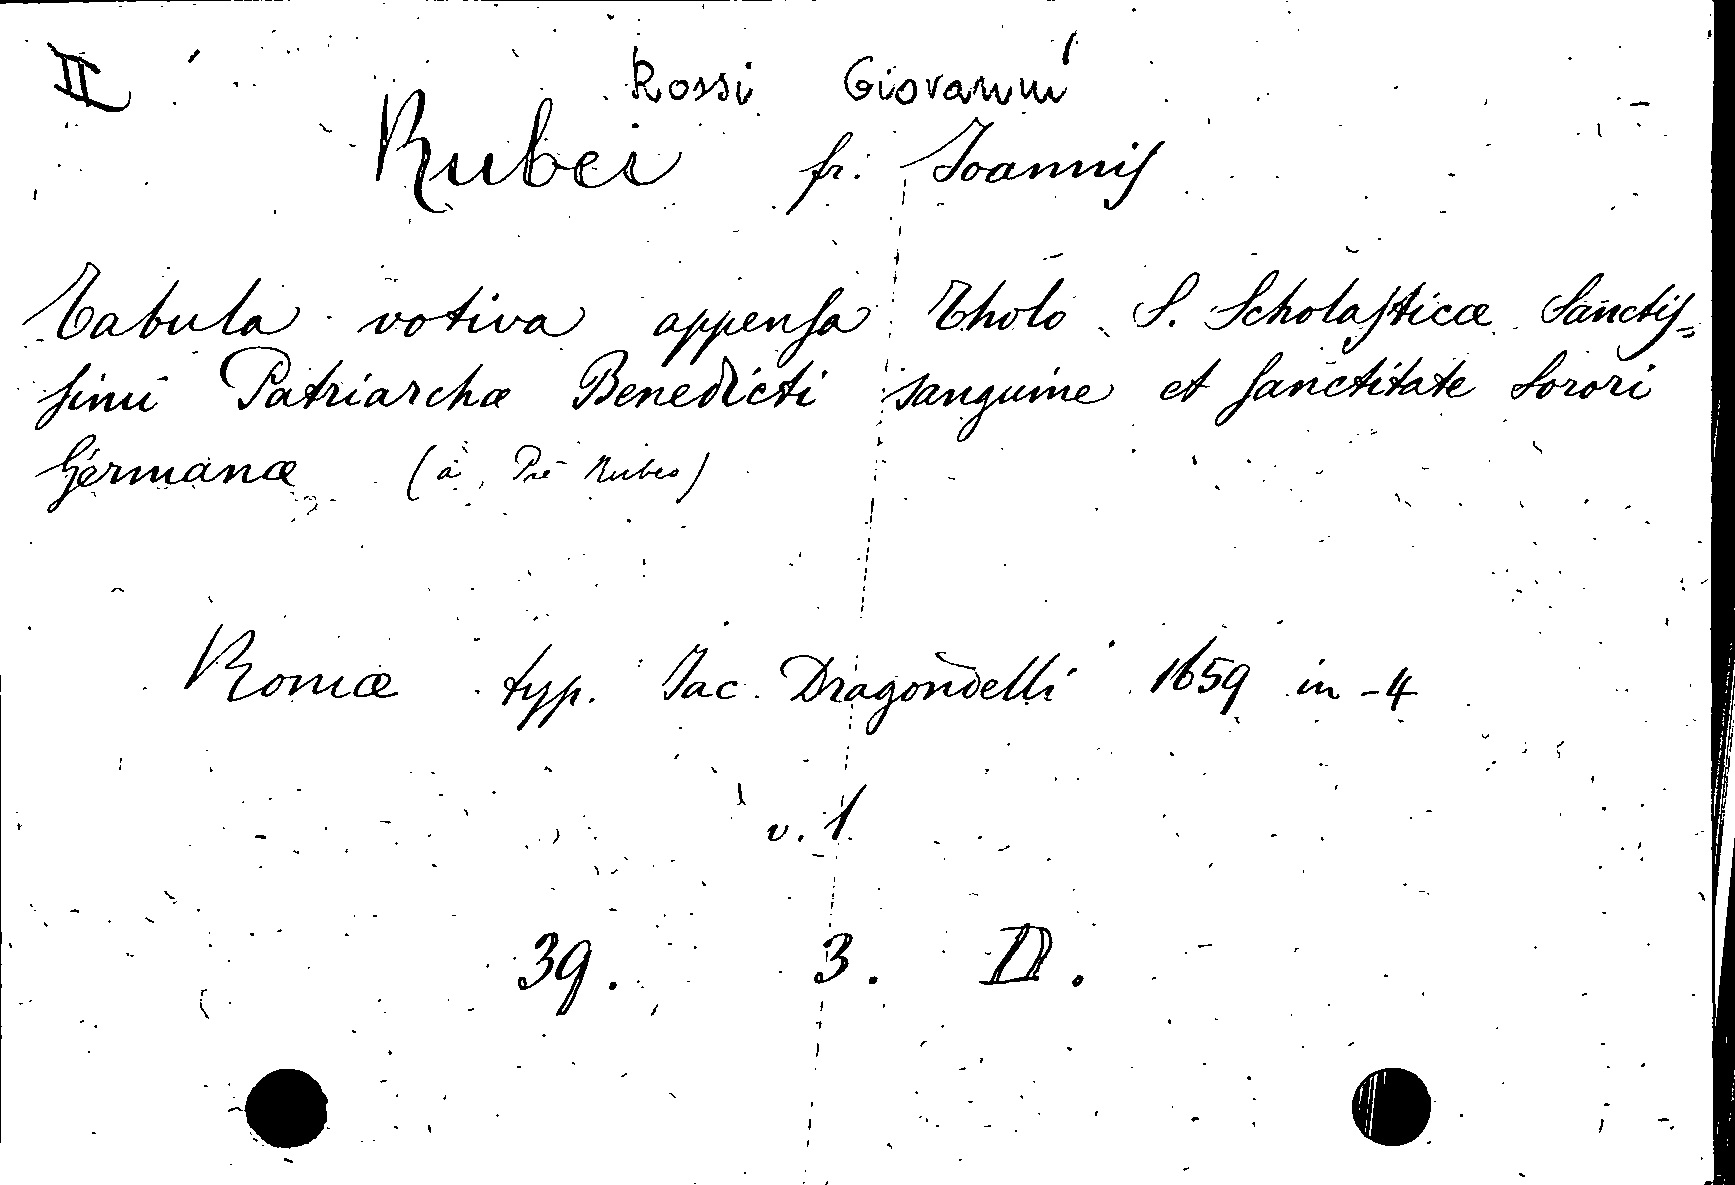 II
Rossi Giovanni
Rubei fr: Joannis
Tabula votiva appensa Tholo S. Scholasticæ Sanctis=
simi Patriarchæ Benedicti sanguine et sanctitate Sorori
Germanæ (a Rubeo)
Romæ typ. Jac. Dragondelli 1659 in -4
v. 1.
39. 3. D.